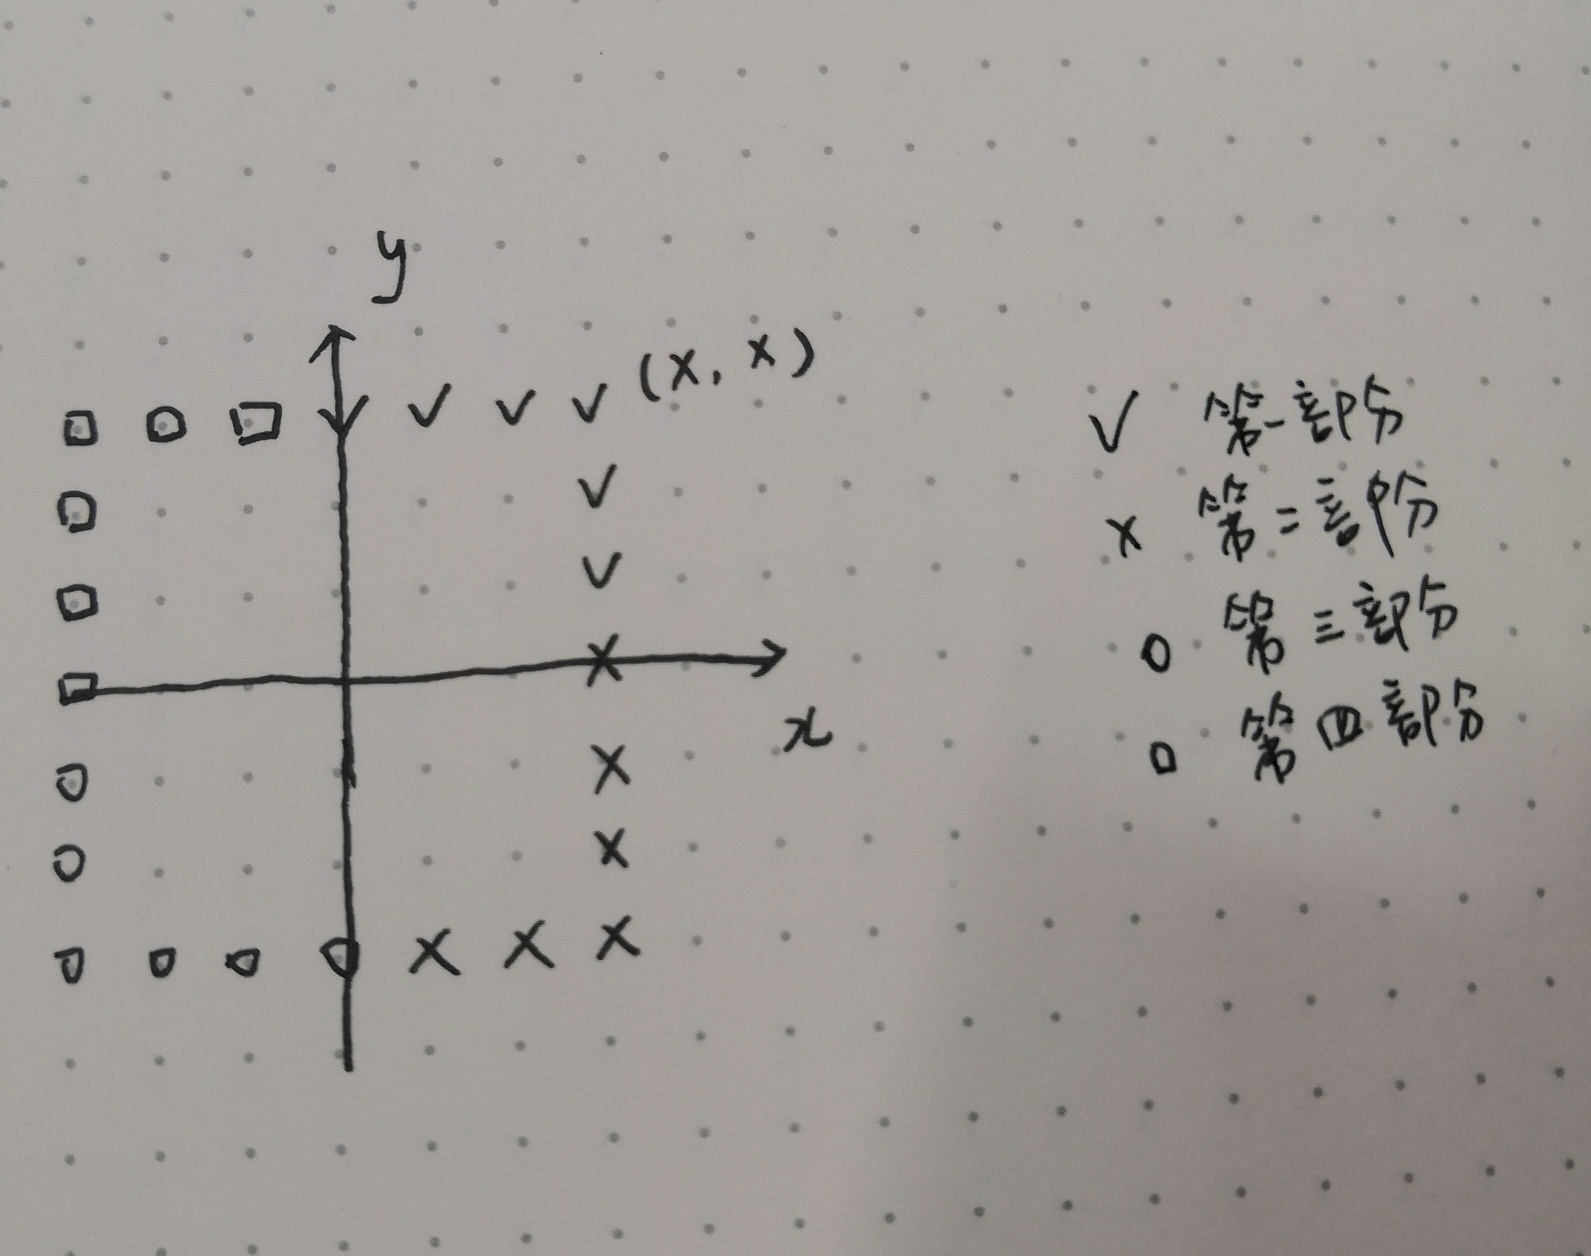 y
(x, x)
x
√ 第一部分
x 第二部分
o 第三部分
□ 第四部分